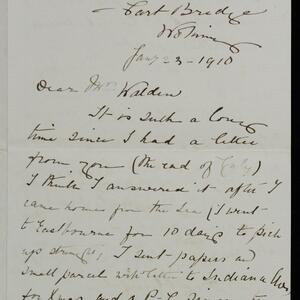 Cart Bridge
Woking
Jany 23 - 1910
Dear Mrs Walden
It is such a long
time since I had a letter
from you (the end of July)
I think I answered it after I
came home from the Sea (I went
to Eastbourne for 10 days to pick
up strength, I sent papers and
small parcel with letter to Indiana Ave
for Xmas and a P.C. since to